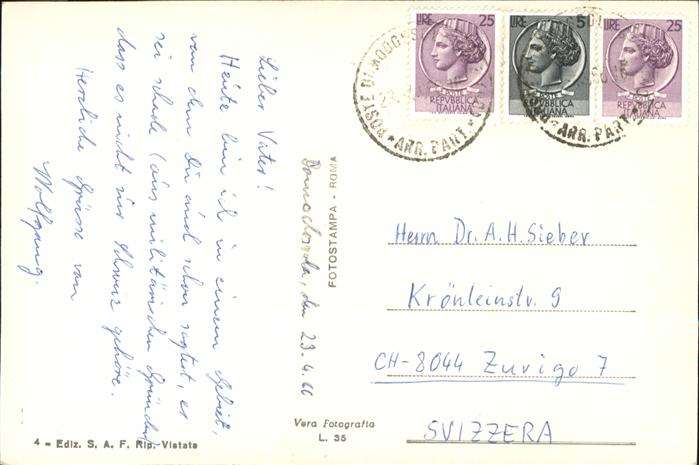 Domodossola, den 23.4.66
Lieber Vater!
Heute bin ich in einem Gebiet,
von dem Du auch schon sagtest, es
sei schade (aus militärischen Gründen)
dass es nicht zur Schweiz gehöre.
Herzliche Grüsse von
Wolfgang.
4 - Ediz. S. A. F. Rip. Vietate
FOTOSTAMPA - ROMA
Vera Fotografia
L. 35
LIRE 25
POSTE
REPVBBLICA
ITALIANA
LIRE 5
POSTE
REPVBBLICA
ITALIANA
LIRE 25
REPVBBLICA
ITALIANA
POSTE DI
ARR. PART.
ARR. PART.
Herrn Dr. A. H. Sieber
Krönleinstr. 9
CH-8044 Zurigo 7
SVIZZERA